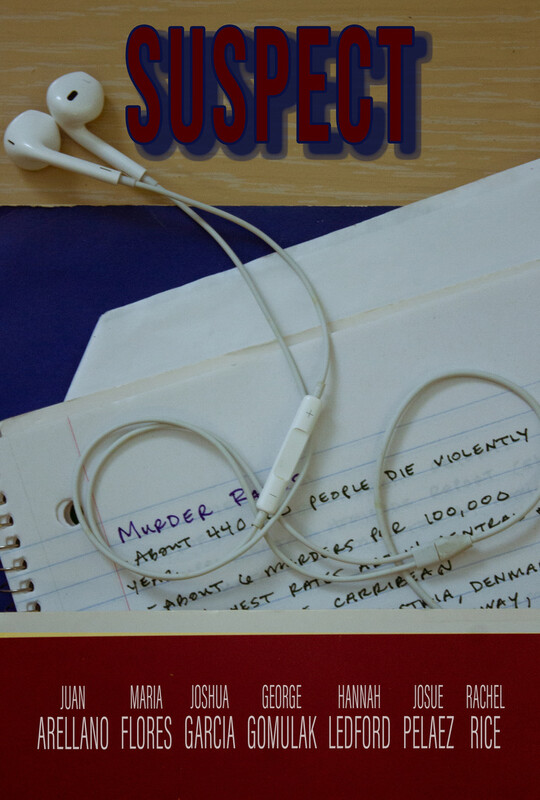 SUSPECT
MURDER
ABOUT 440 PEOPLE DIE VIOLENTLY
- ABOUT 6 MURDERS PER 100,000
RATES
CARRIBEAN
JUAN ARELLANO
MARIA FLORES
JOSHUA GARCIA
GEORGE GOMULAK
HANNAH LEDFORD
JOSUE PELAEZ
RACHEL RICE